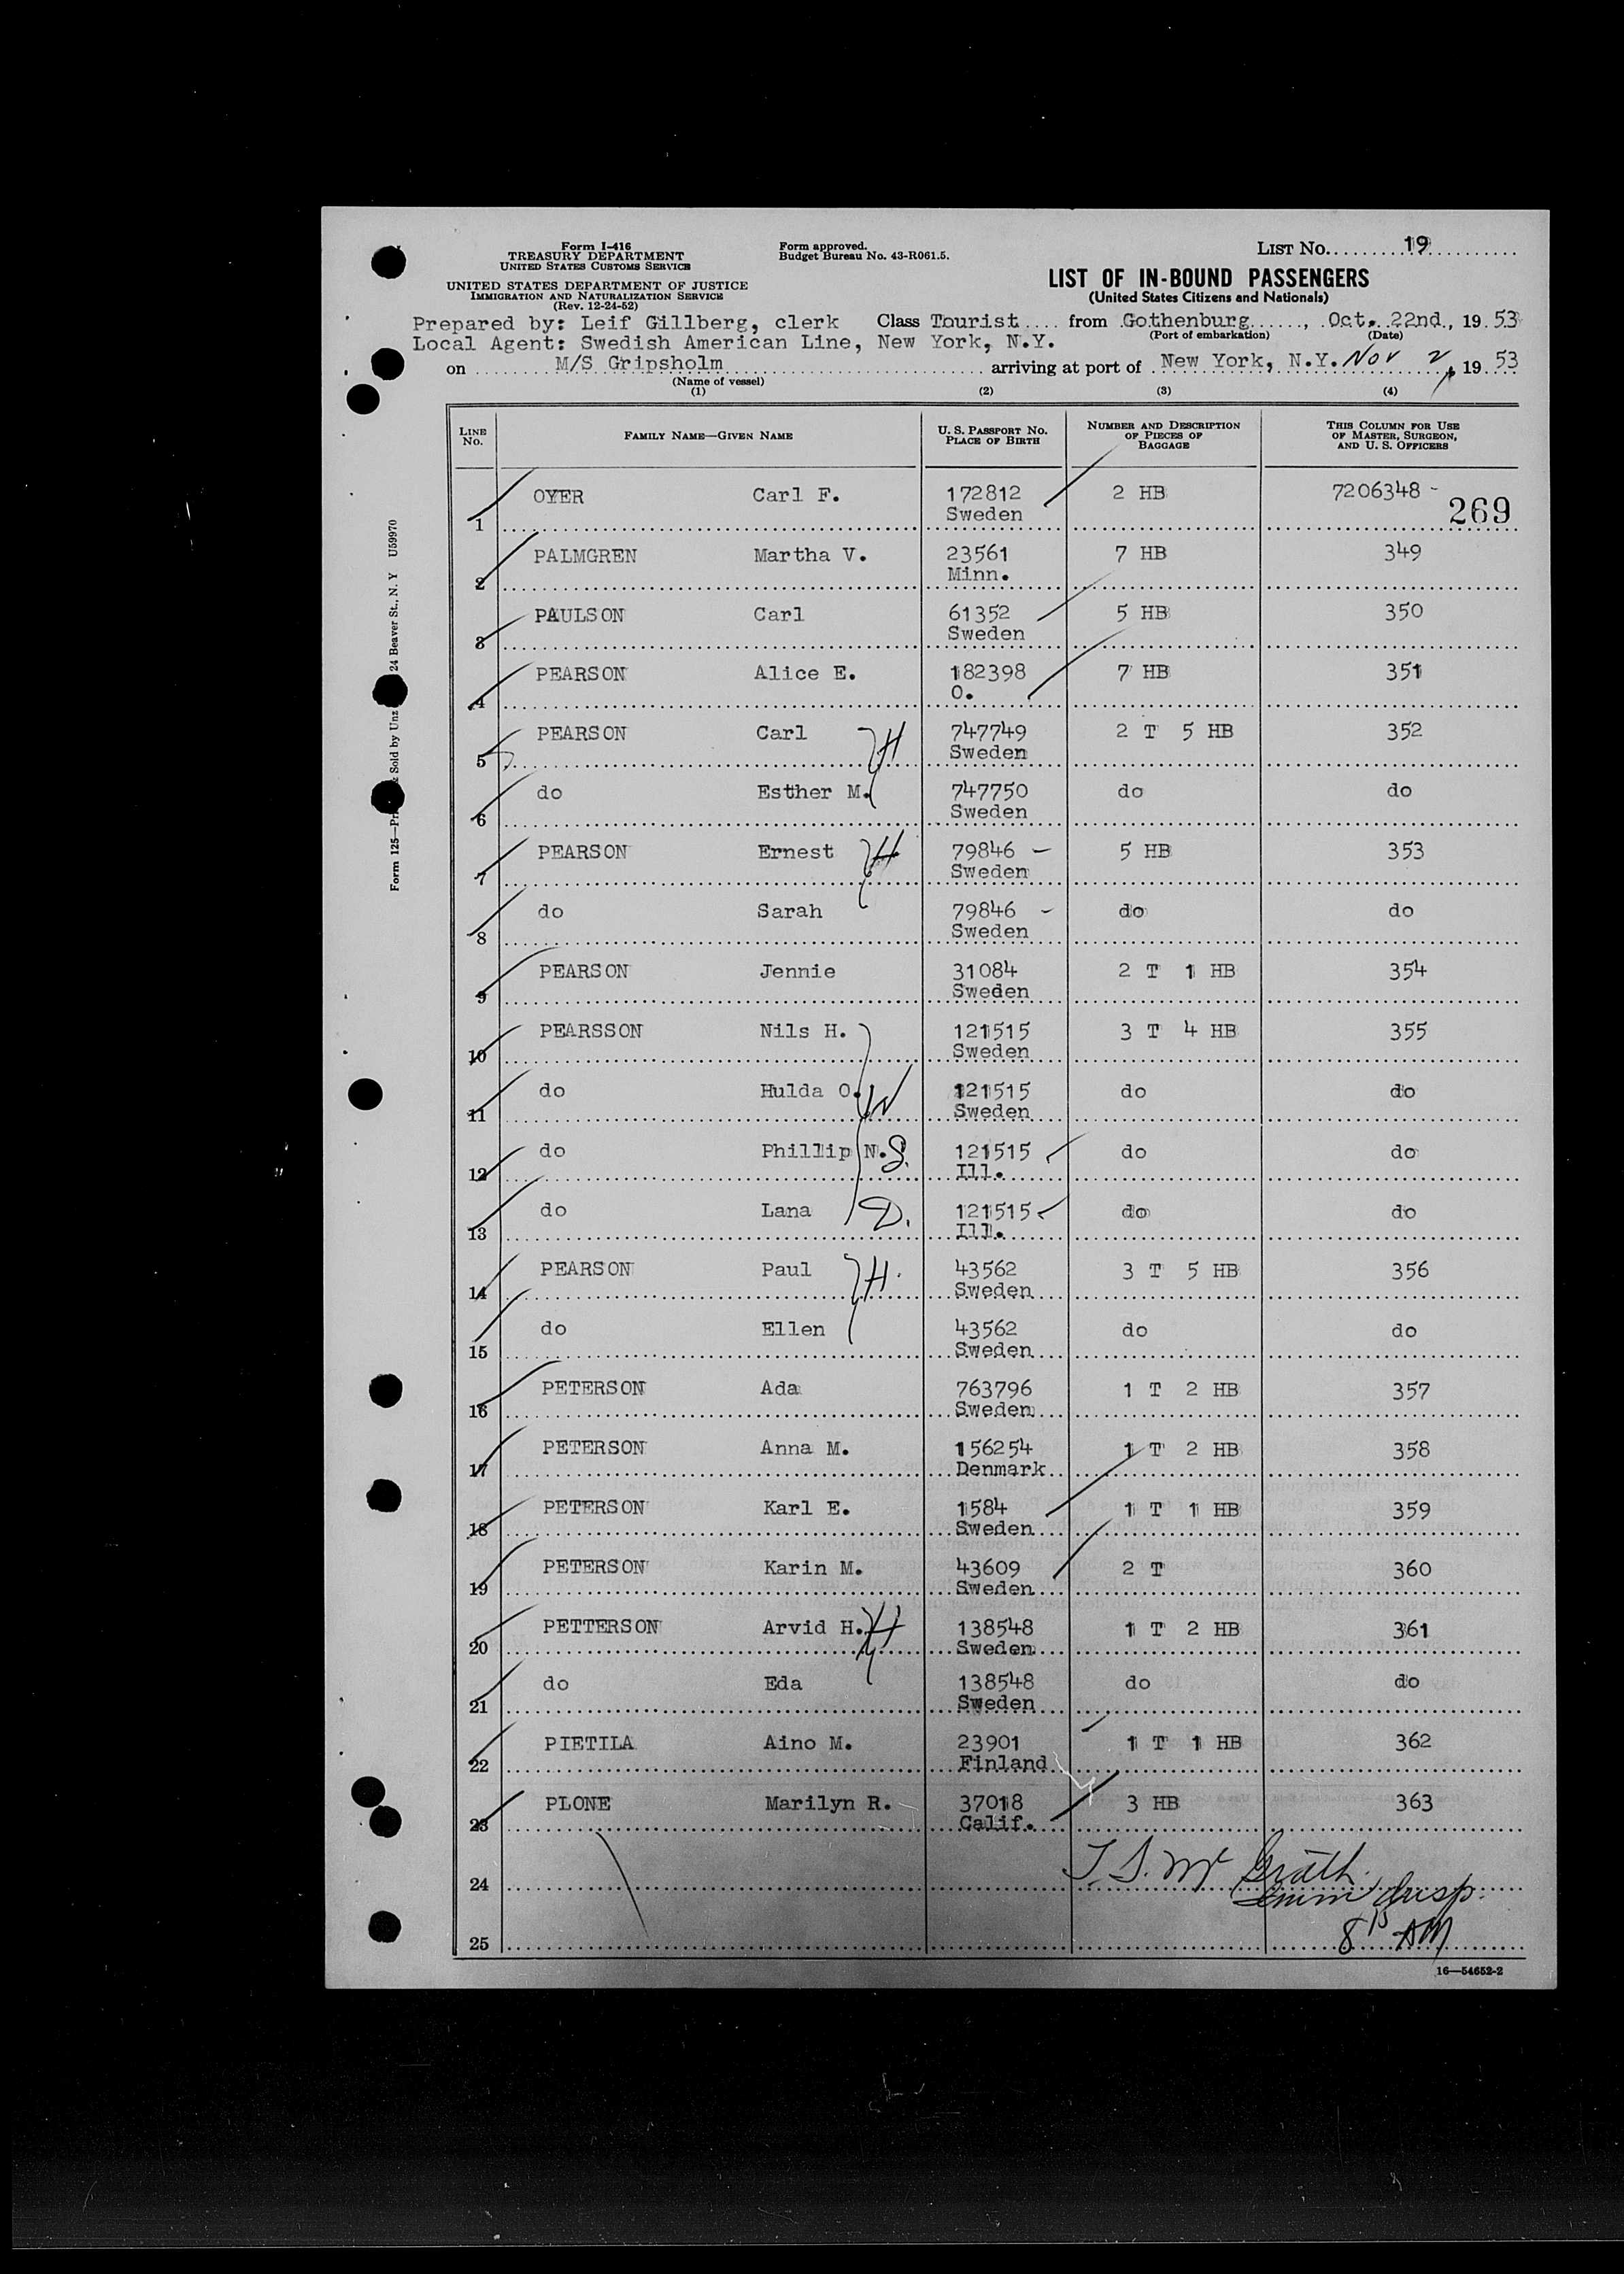 Form I-416
TREASURY DEPARTMENT
UNITED STATES CUSTOMS SERVICE
UNITED STATES DEPARTMENT OF JUSTICE
IMMIGRATION AND NATURALIZATION SERVICE
(Rev. 12-24-52)
Form approved.
Budget Bureau No. 43-R061.5.
LIST No. 19
LIST OF IN-BOUND PASSENGERS
(United States Citizens and Nationals)
Prepared by: Leif Gillberg, clerk Class Tourist from Gothenburg, Oct. 22nd, 19 53
(Port of embarkation) (Date)
Local Agent: Swedish American Line, New York, N.Y.
on M/S Gripsholm arriving at port of New York, N.Y. Nov 2, 19 53
(Name of vessel)
(1) (2) (3) (4)
LINE No. FAMILY NAME—GIVEN NAME U. S. PASSPORT No. PLACE OF BIRTH NUMBER AND DESCRIPTION OF PIECES OF BAGGAGE THIS COLUMN FOR USE OF MASTER, SURGEON, AND U. S. OFFICERS
1 OYER Carl F. 172812 Sweden 2 HB 7206348 - 269
2 PALMGREN Martha V. 23561 Minn. 7 HB 349
3 PAULSON Carl 61352 Sweden 5 HB 350
4 PEARSON Alice E. 182398 O. 7 HB 351
5 PEARSON Carl H 747749 Sweden 2 T 5 HB 352
6 do Esther M. 747750 Sweden do do
7 PEARSON Ernest H 79846 — Sweden 5 HB 353
8 do Sarah 79846 - Sweden do do
9 PEARSON Jennie 31084 Sweden 2 T 1 HB 354
10 PEARSSON Nils H. 121515 Sweden 3 T 4 HB 355
11 do Hulda O. W 121515 Sweden do do
12 do Phillip N. S. 121515 Ill. do do
13 do Lana D. 121515 Ill. do do
14 PEARSON Paul H. 43562 Sweden 3 T 5 HB 356
15 do Ellen 43562 Sweden do do
16 PETERSON Ada 763796 Sweden 1 T 2 HB 357
17 PETERSON Anna M. 156254 Denmark 1 T 2 HB 358
18 PETERSON Karl E. 1584 Sweden 1 T 1 HB 359
19 PETERSON Karin M. 43609 Sweden 2 T 360
20 PETTERSON Arvid H. H 138548 Sweden 1 T 2 HB 361
21 do Eda 138548 Sweden do do
22 PIETILA Aino M. 23901 Finland 1 T 1 HB 362
23 PLONE Marilyn R. 37018 Calif. 3 HB 363
24 T. S. McGrath
Imm Insp.
25 8 15 AM
16—54652-2
Form 125— Sold by Unz 24 Beaver St., N. Y U59970